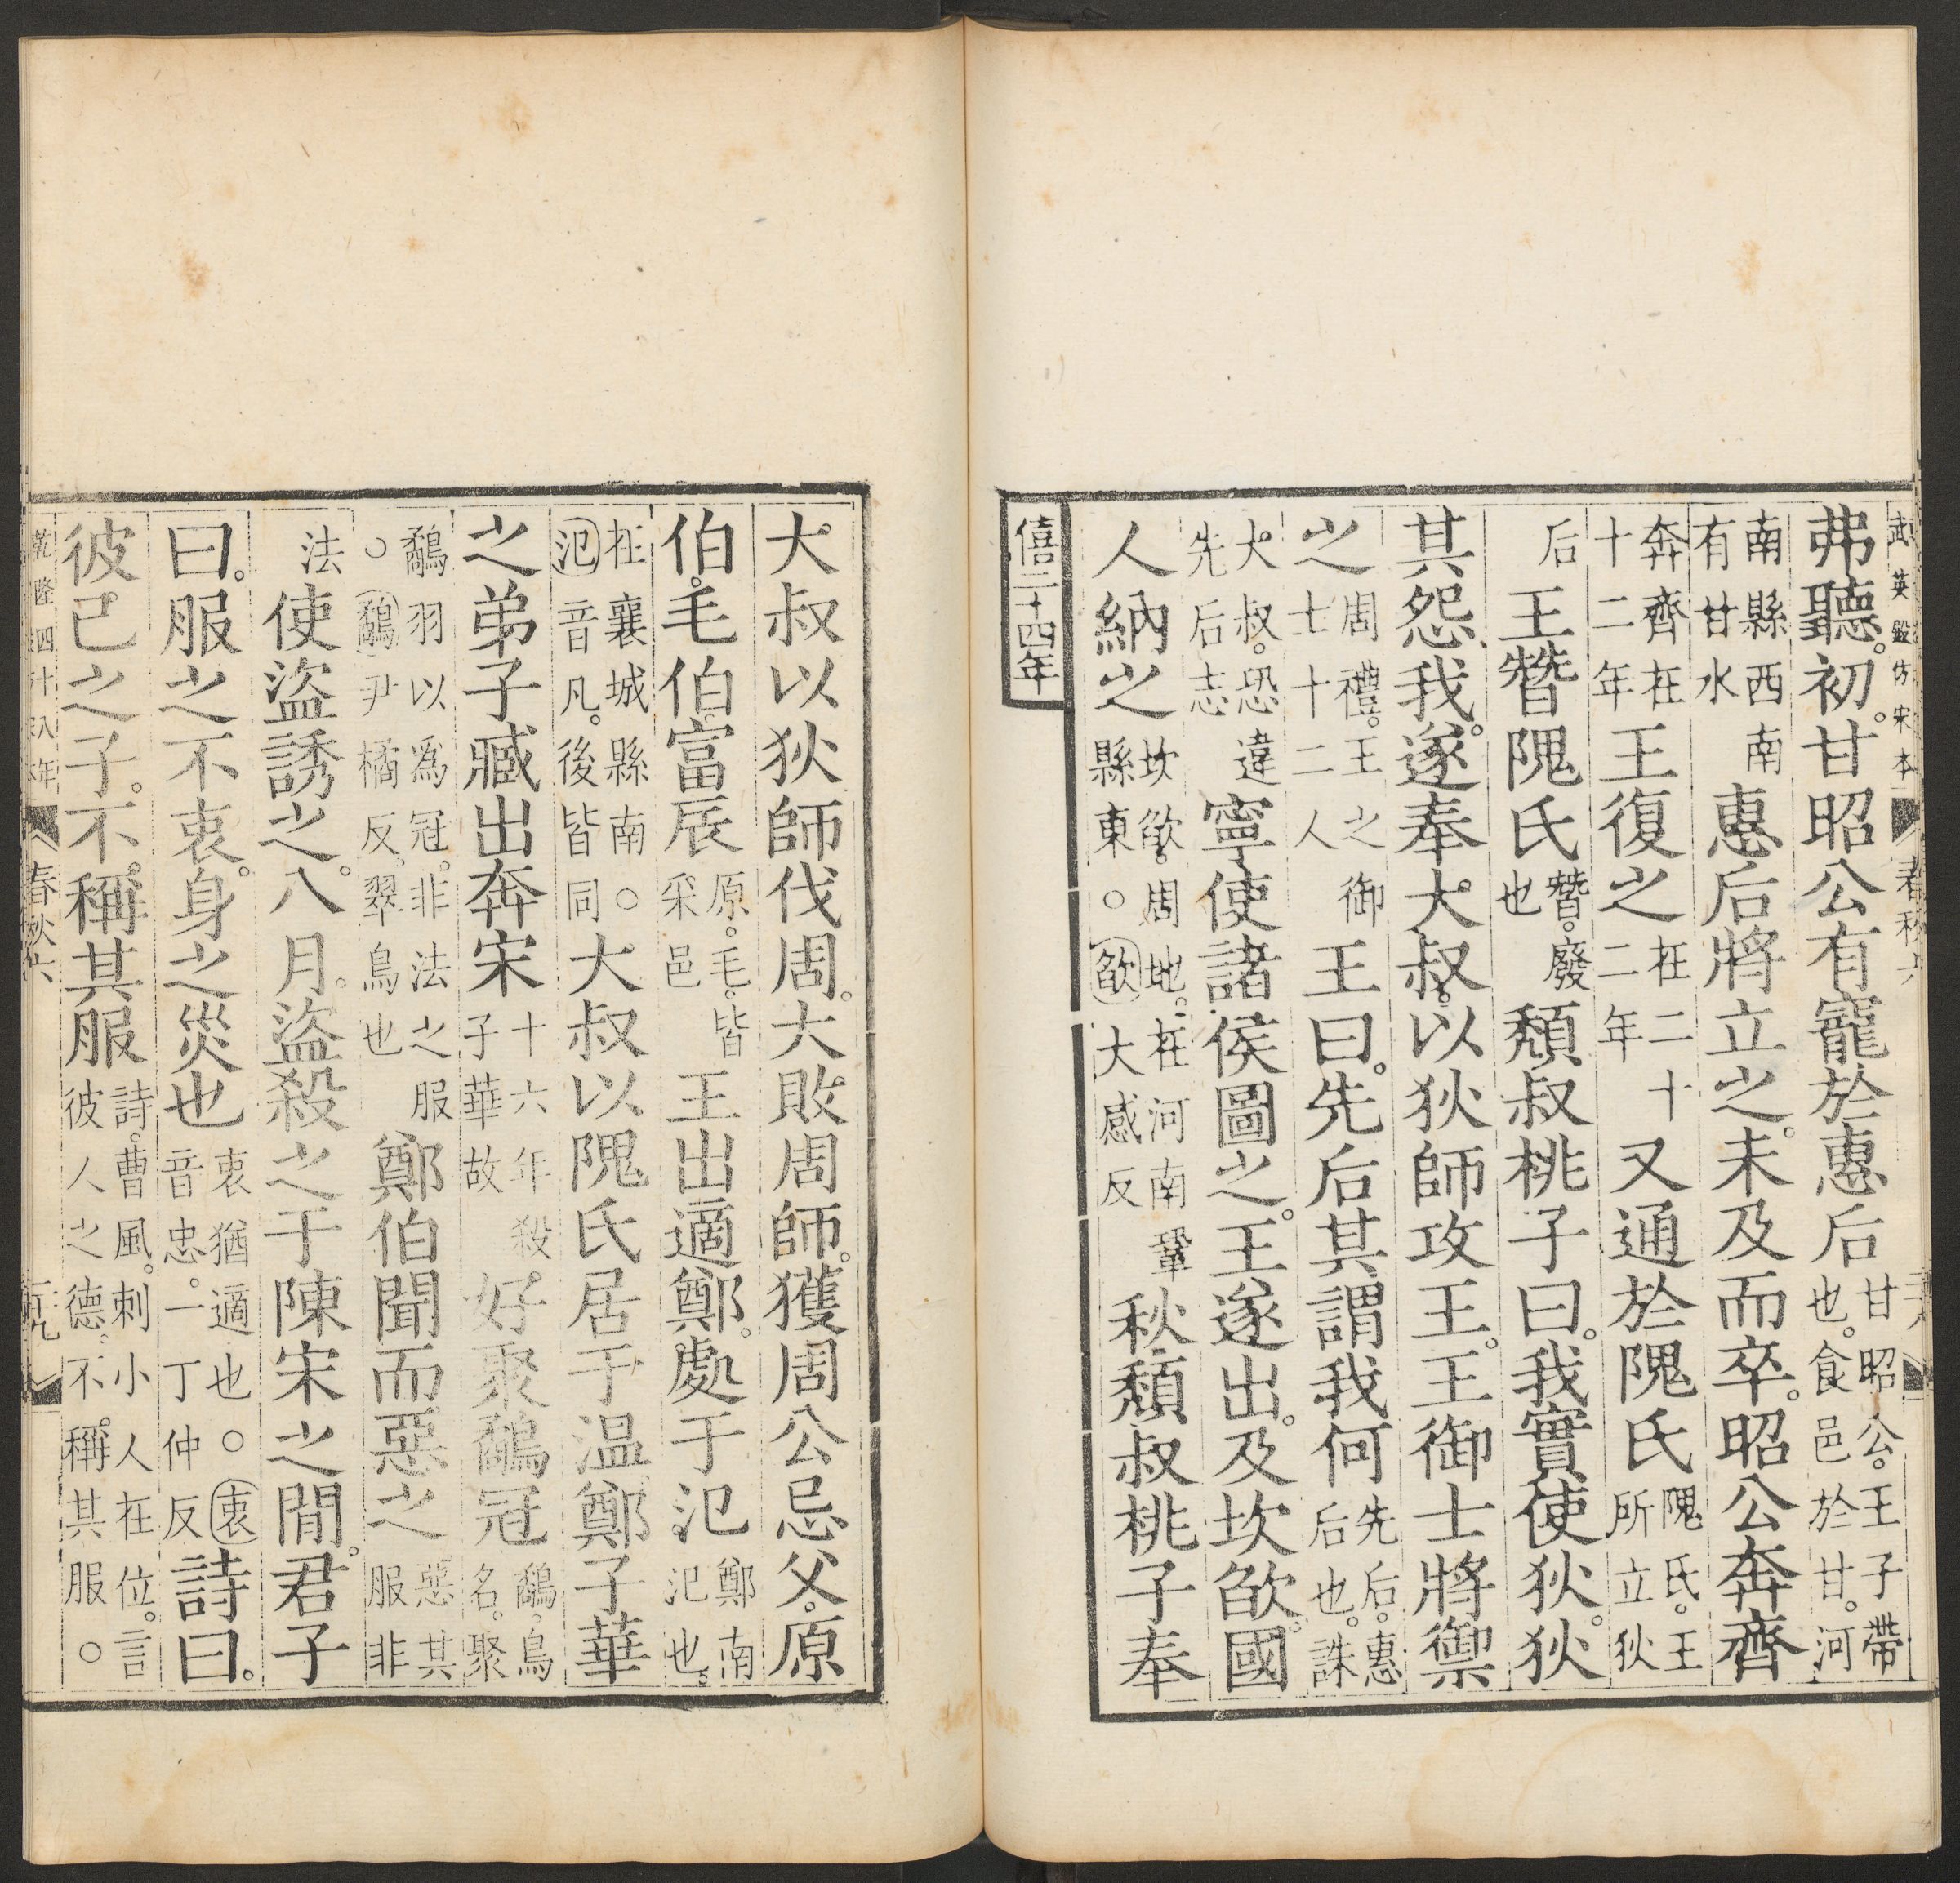 武英殿仿宋本
春秋六
二八
弗聽。初。甘昭公有寵於惠后甘昭公。王子帶也。食邑於甘。河
南縣西南有甘水惠后將立之。未及而卒。昭公奔齊
奔齊在十二年王復之在二十二年又通於隗氏隗氏。王所立狄
后王替隗氏替。廢也頹叔桃子曰。我實使狄。狄
其怨我。遂奉大叔。以狄師攻王。王御士將禦
之周禮。王之御士十二人王曰。先后其謂我何先后。惠后也。誅
大叔。恐違先后志寧使諸侯圖之。王遂出。及坎欿。國
人納之坎欿。周地。在河南鞏縣東○欿大感反秋頹叔桃子奉
僖二十四年
大叔以狄師伐周。大敗周師。獲周公忌父。原
伯。毛伯。富辰原。毛。皆采邑王出適鄭。處于氾鄭南氾也。
在襄城縣南○氾音凡。後皆同大叔以隗氏居于温鄭子華
之弟子臧出奔宋十六年殺子華故好聚鷸冠鷸。鳥名。聚
鷸羽以為冠。非法之服○鷸尹橘反。翠鳥也鄭伯聞而惡之惡其服非
法使盜誘之。八月。盜殺之于陳宋之間。君子
曰。服之不衷。身之災也衷猶適也○衷音忠。一丁仲反詩曰。
彼己之子。不稱其服詩。曹風。刺小人在位。言彼人之德。不稱其服○
乾隆四十八年
春秋六
二九